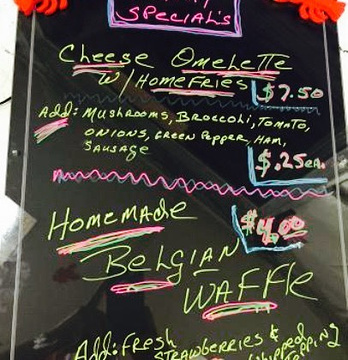 SPECIAL'S
CHEESE OMELETTE
W/HOMEFRIES $7.50
Add: MUSHROOMS, BROCCOLI, TOMATO,
ONIONS, GREEN PEPPER, HAM,
SAUSAGE
$.25ea.
HOMEMADE
$4.00
BELGIAN
WAFFLE
Add: FRESH
STRAWBERRIES &